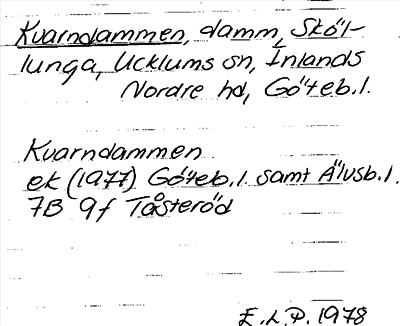 Kvarndammen, damm, Sköl-
lunga, Ucklums sn, Inlands
Nordre hd, Göteb.l.
Kvarndammen
ek (1977) Göteb.l. samt Älvsb.l.
7B 9f Tåsteröd
E.L.P. 1978